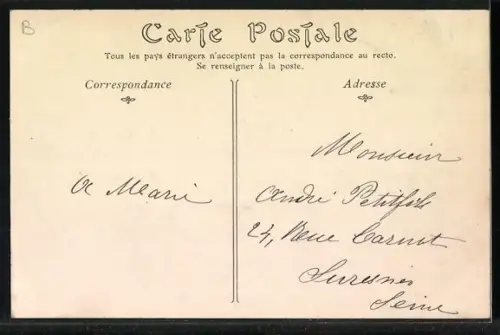 B
Carte Postale
Tous les pays étrangers n'acceptent pas la correspondance au recto.
Se renseigner à la poste.
Correspondance
Adresse
Monsieur
André Petitfils
24, Rue Carnot
Suresnes
Seine
Marie